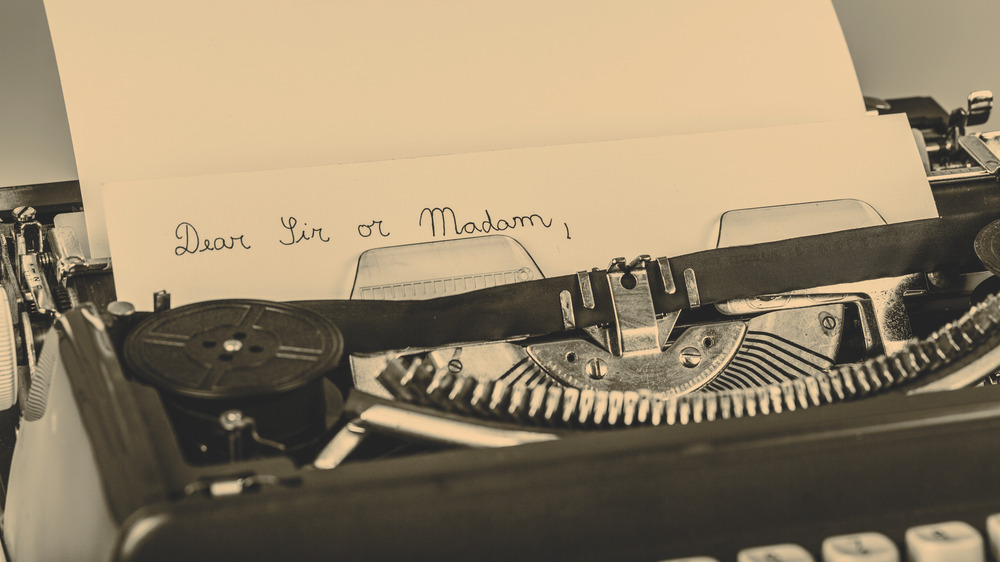 Dear Sir or Madam,